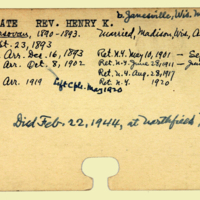 ATE REV. HENRY K. b. Janesville, Wis.
1890-1893. Married, Madison, Wis, A
t. 23, 1893
Arr. Dec. 16, 1893 Ret. N.Y. May 10, 1901 - Se
Arr. Oct. 8, 1902 Ret. N.Y. June 28, 1911 -
Ret. N.Y. Aug. 28, 1917
Arr. 1919 Left Cple. May 1920 Ret. N.Y. 1920
Died Feb. 22, 1944, at Northfield